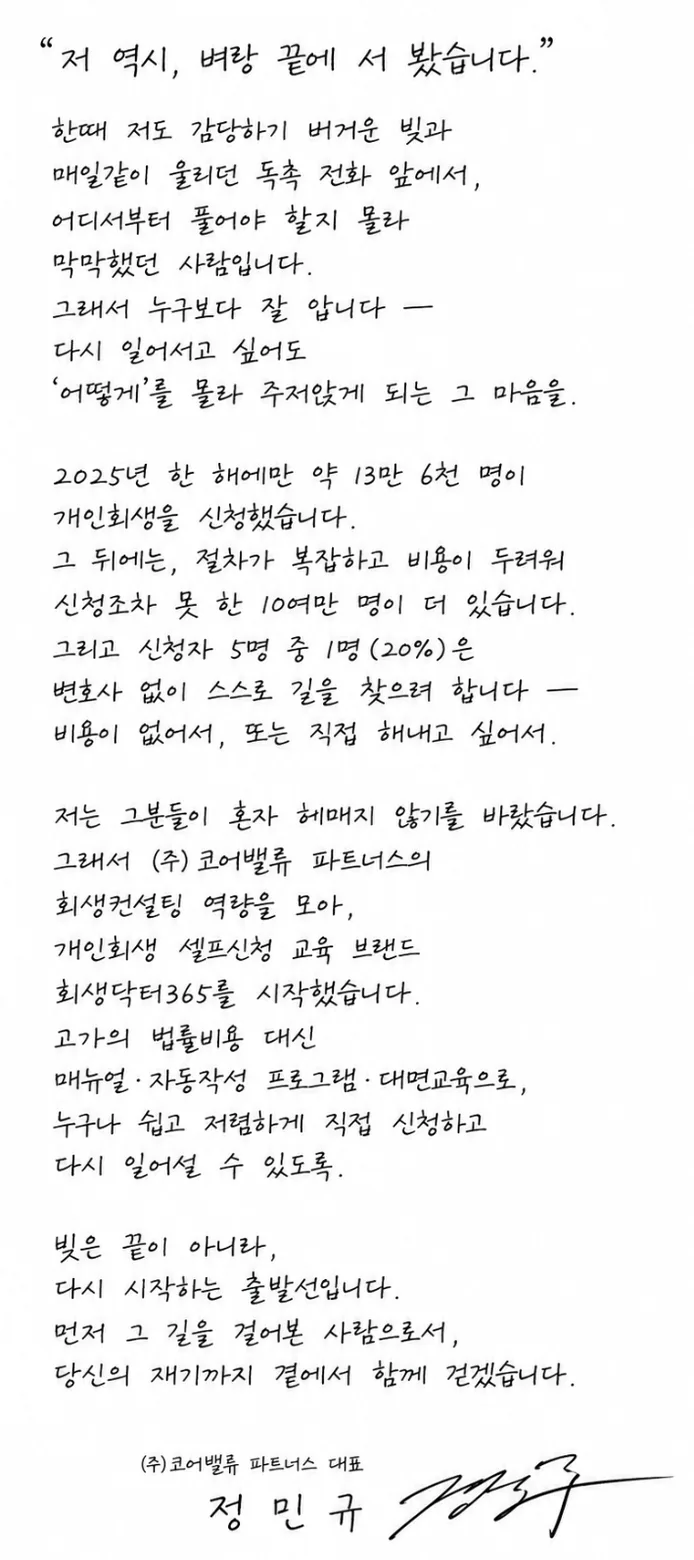 “저 역시, 벼랑 끝에 서 봤습니다.”
한때 저도 감당하기 버거운 빚과
매일같이 울리던 독촉 전화 앞에서,
어디서부터 풀어야 할지 몰라
막막했던 사람입니다.
그래서 누구보다 잘 압니다 —
다시 일어서고 싶어도
‘어떻게’를 몰라 주저앉게 되는 그 마음을.
2025년 한 해에만 약 13만 6천 명이
개인회생을 신청했습니다.
그 뒤에는, 절차가 복잡하고 비용이 두려워
신청조차 못 한 10여만 명이 더 있습니다.
그리고 신청자 5명 중 1명(20%)은
변호사 없이 스스로 길을 찾으려 합니다 —
비용이 없어서, 또는 직접 해내고 싶어서.
저는 그분들이 혼자 헤매지 않기를 바랐습니다.
그래서 (주)코어밸류 파트너스의
회생컨설팅 역량을 모아,
개인회생 셀프신청 교육 브랜드
회생닥터365를 시작했습니다.
고가의 법률비용 대신
매뉴얼·자동작성 프로그램·대면교육으로,
누구나 쉽고 저렴하게 직접 신청하고
다시 일어설 수 있도록.
빚은 끝이 아니라,
다시 시작하는 출발선입니다.
먼저 그 길을 걸어본 사람으로서,
당신의 재기까지 곁에서 함께 걷겠습니다.
(주)코어밸류 파트너스 대표
정민규